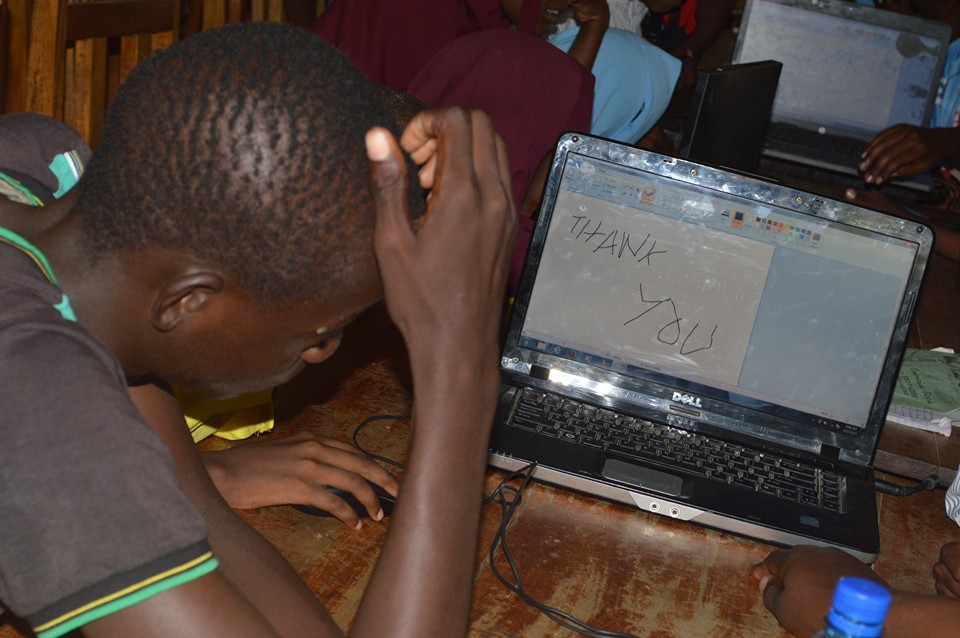 THANK
YOU
DELL